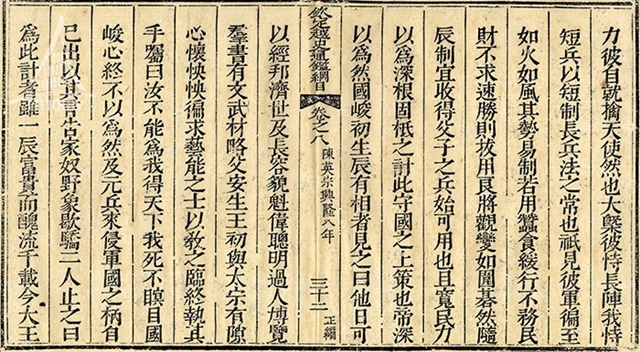 力彼自就擒天使然也大槩彼恃長陣我恃
短兵以短制長兵法之常也祇見彼軍徧至
如火如風其勢易制若用蠶食緩行不務民
財不求速勝則拔用良將觀變如圍棊然隨
辰制宜收得父子之兵始可用也且寬民力
以爲深根固柢之計此守國之上策也帝深
以爲然國峻初生辰有相者見之曰他日可
欽定越史通鑑綱目 卷之八 陳英宗興隆八年 三十二 正編
以經邦濟世及長容貌魁偉聰明過人博覽
羣書有文武材略父安生王初與太宗有隙
心懷怏怏徧求藝能之士以敎之臨終執其
手囑曰汝不能爲我得天下我死不瞑目國
峻心終不以爲然及元兵來侵軍國之柄自
己出以其言告家奴野象歇驕二人止之曰
爲此計者雖一辰富貴而醜流千載今大王